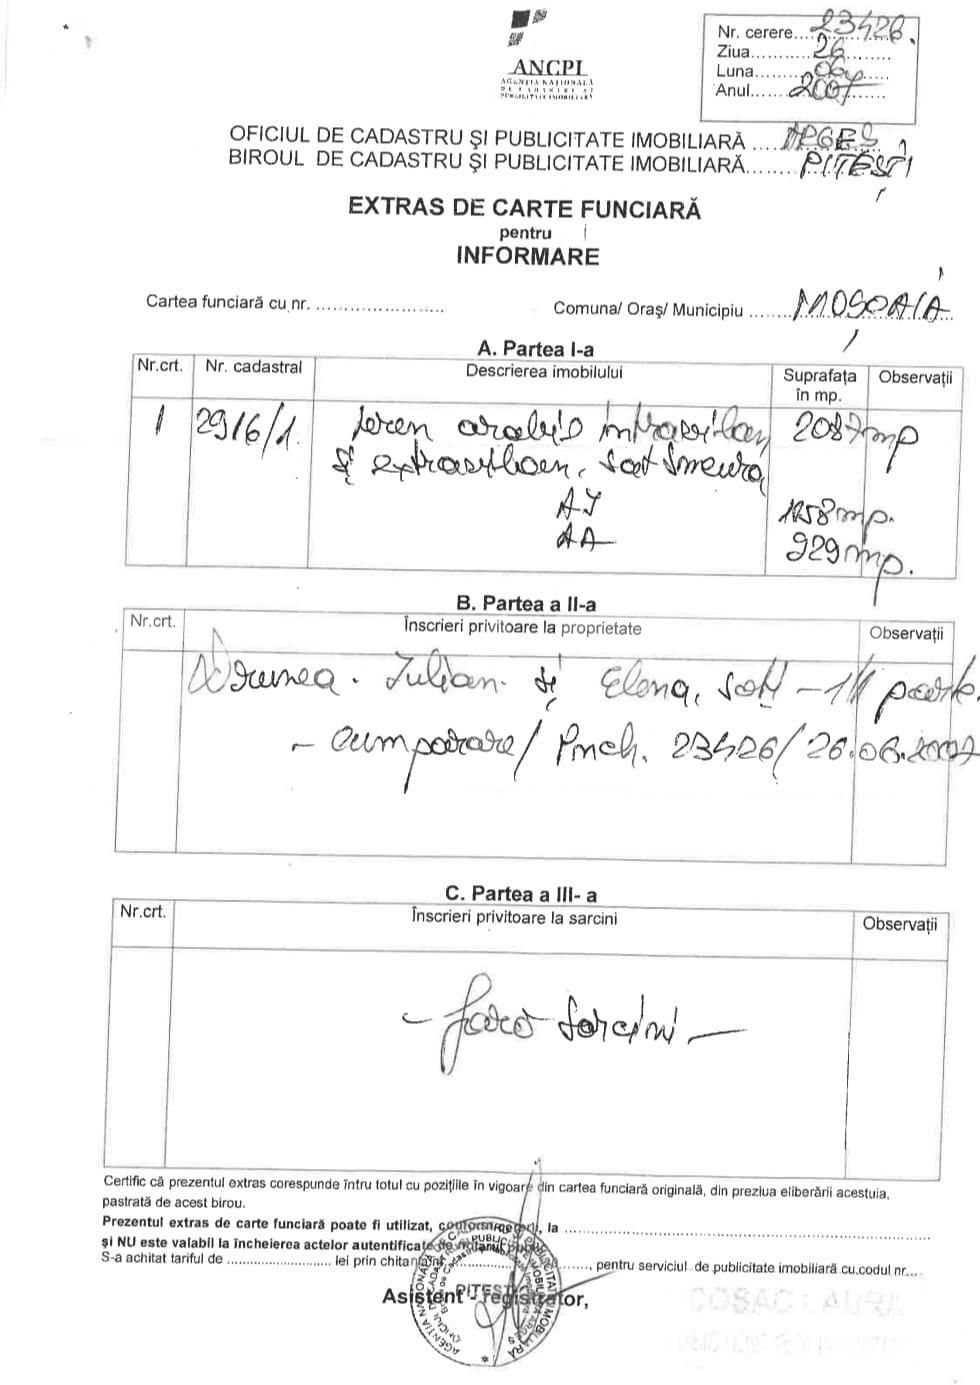 ANCPI
AGENȚIA NAȚIONALĂ
DE CADASTRU ȘI
PUBLICITATE IMOBILIARĂ
Nr. cerere....23426.
Ziua...........26.........
Luna........06.....
Anul.......2007.......
OFICIUL DE CADASTRU ȘI PUBLICITATE IMOBILIARĂ ....ARGEȘ
BIROUL DE CADASTRU ȘI PUBLICITATE IMOBILIARĂ........PITEȘTI
EXTRAS DE CARTE FUNCIARĂ
pentru
INFORMARE
Cartea funciară cu nr. ........................ Comuna/ Oraș/ Municipiu ........MOȘOAIA
A. Partea I-a
Nr.crt. Nr. cadastral Descrierea imobilului Suprafața în mp. Observații
1 2916/1. teren arabil intravilan 2087mp
și extravilan, sat Smeura,
1158mp.
AA 929mp.
B. Partea a II-a
Nr.crt. Înscrieri privitoare la proprietate Observații
Iulian și Elena, soți - 1/1 parte,
- cumparare/ 23426/26.06.2007
C. Partea a III- a
Nr.crt. Înscrieri privitoare la sarcini Observații
- fara sarcini -
Certific că prezentul extras corespunde întru totul cu pozițiile în vigoare din cartea funciară originală, din preziua eliberării acestuia,
pastrată de acest birou.
Prezentul extras de carte funciară poate fi utilizat, , la ........................
și NU este valabil la încheierea actelor autentificate de notarul public.
S-a achitat tariful de ........................ lei prin chitanța nr. ........................, pentru serviciul de publicitate imobiliară cu codul nr....
PITEȘTI
Asistent - registrator,
COSAC LAURA